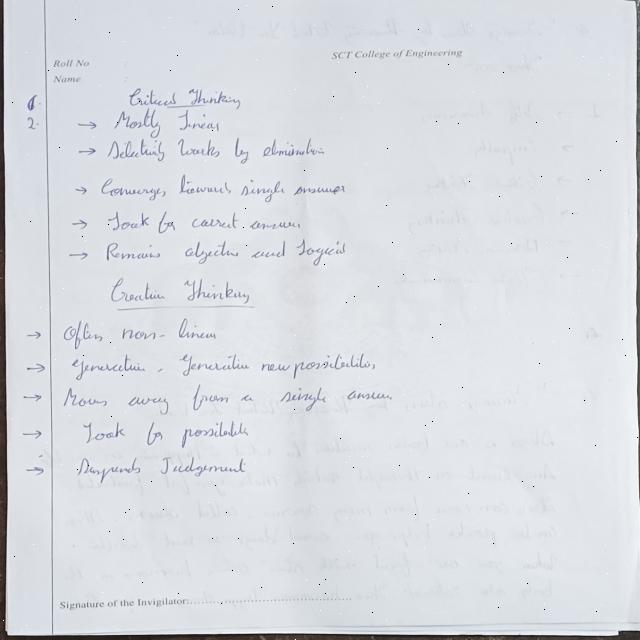 SCT College of Engineering
Roll No :
Name :
1. Critical Thinking
2. → Mostly linear
→ Selectivity Works by elimination
→ Converges towards single answer
→ Look for correct answer
→ Remains objective and Logical
Creative Thinking
→ Often non-linear
→ Generative. Generative new possibilities
→ Moves away from a single answer
→ Look for possibilities
→ Suspends Judgement
Signature of the Invigilator: